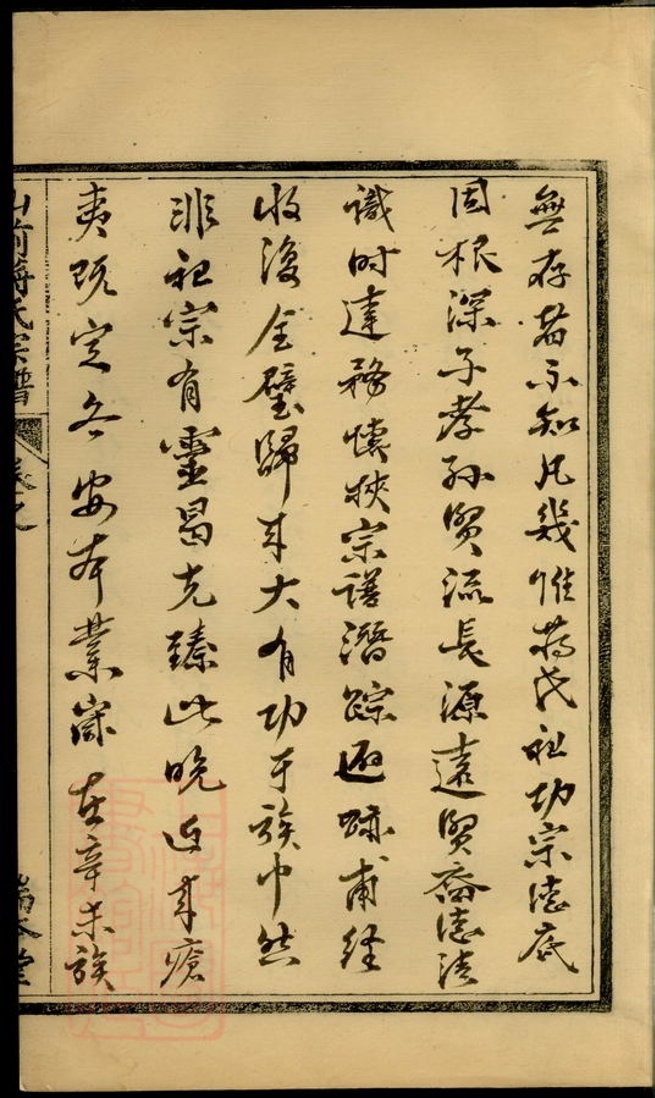 無存者不知凡幾惟蔣氏祖功宗德底
固根深子孝孫賢流長源遠賢裔德清
識時達務懷挾宗譜潛踪避跡甫經
收復全璧歸來大有功于族中然
非祖宗有靈曷克臻此晚近來瘡
夷既定各安本業歲在辛未族
山前蔣氏宗譜
卷之